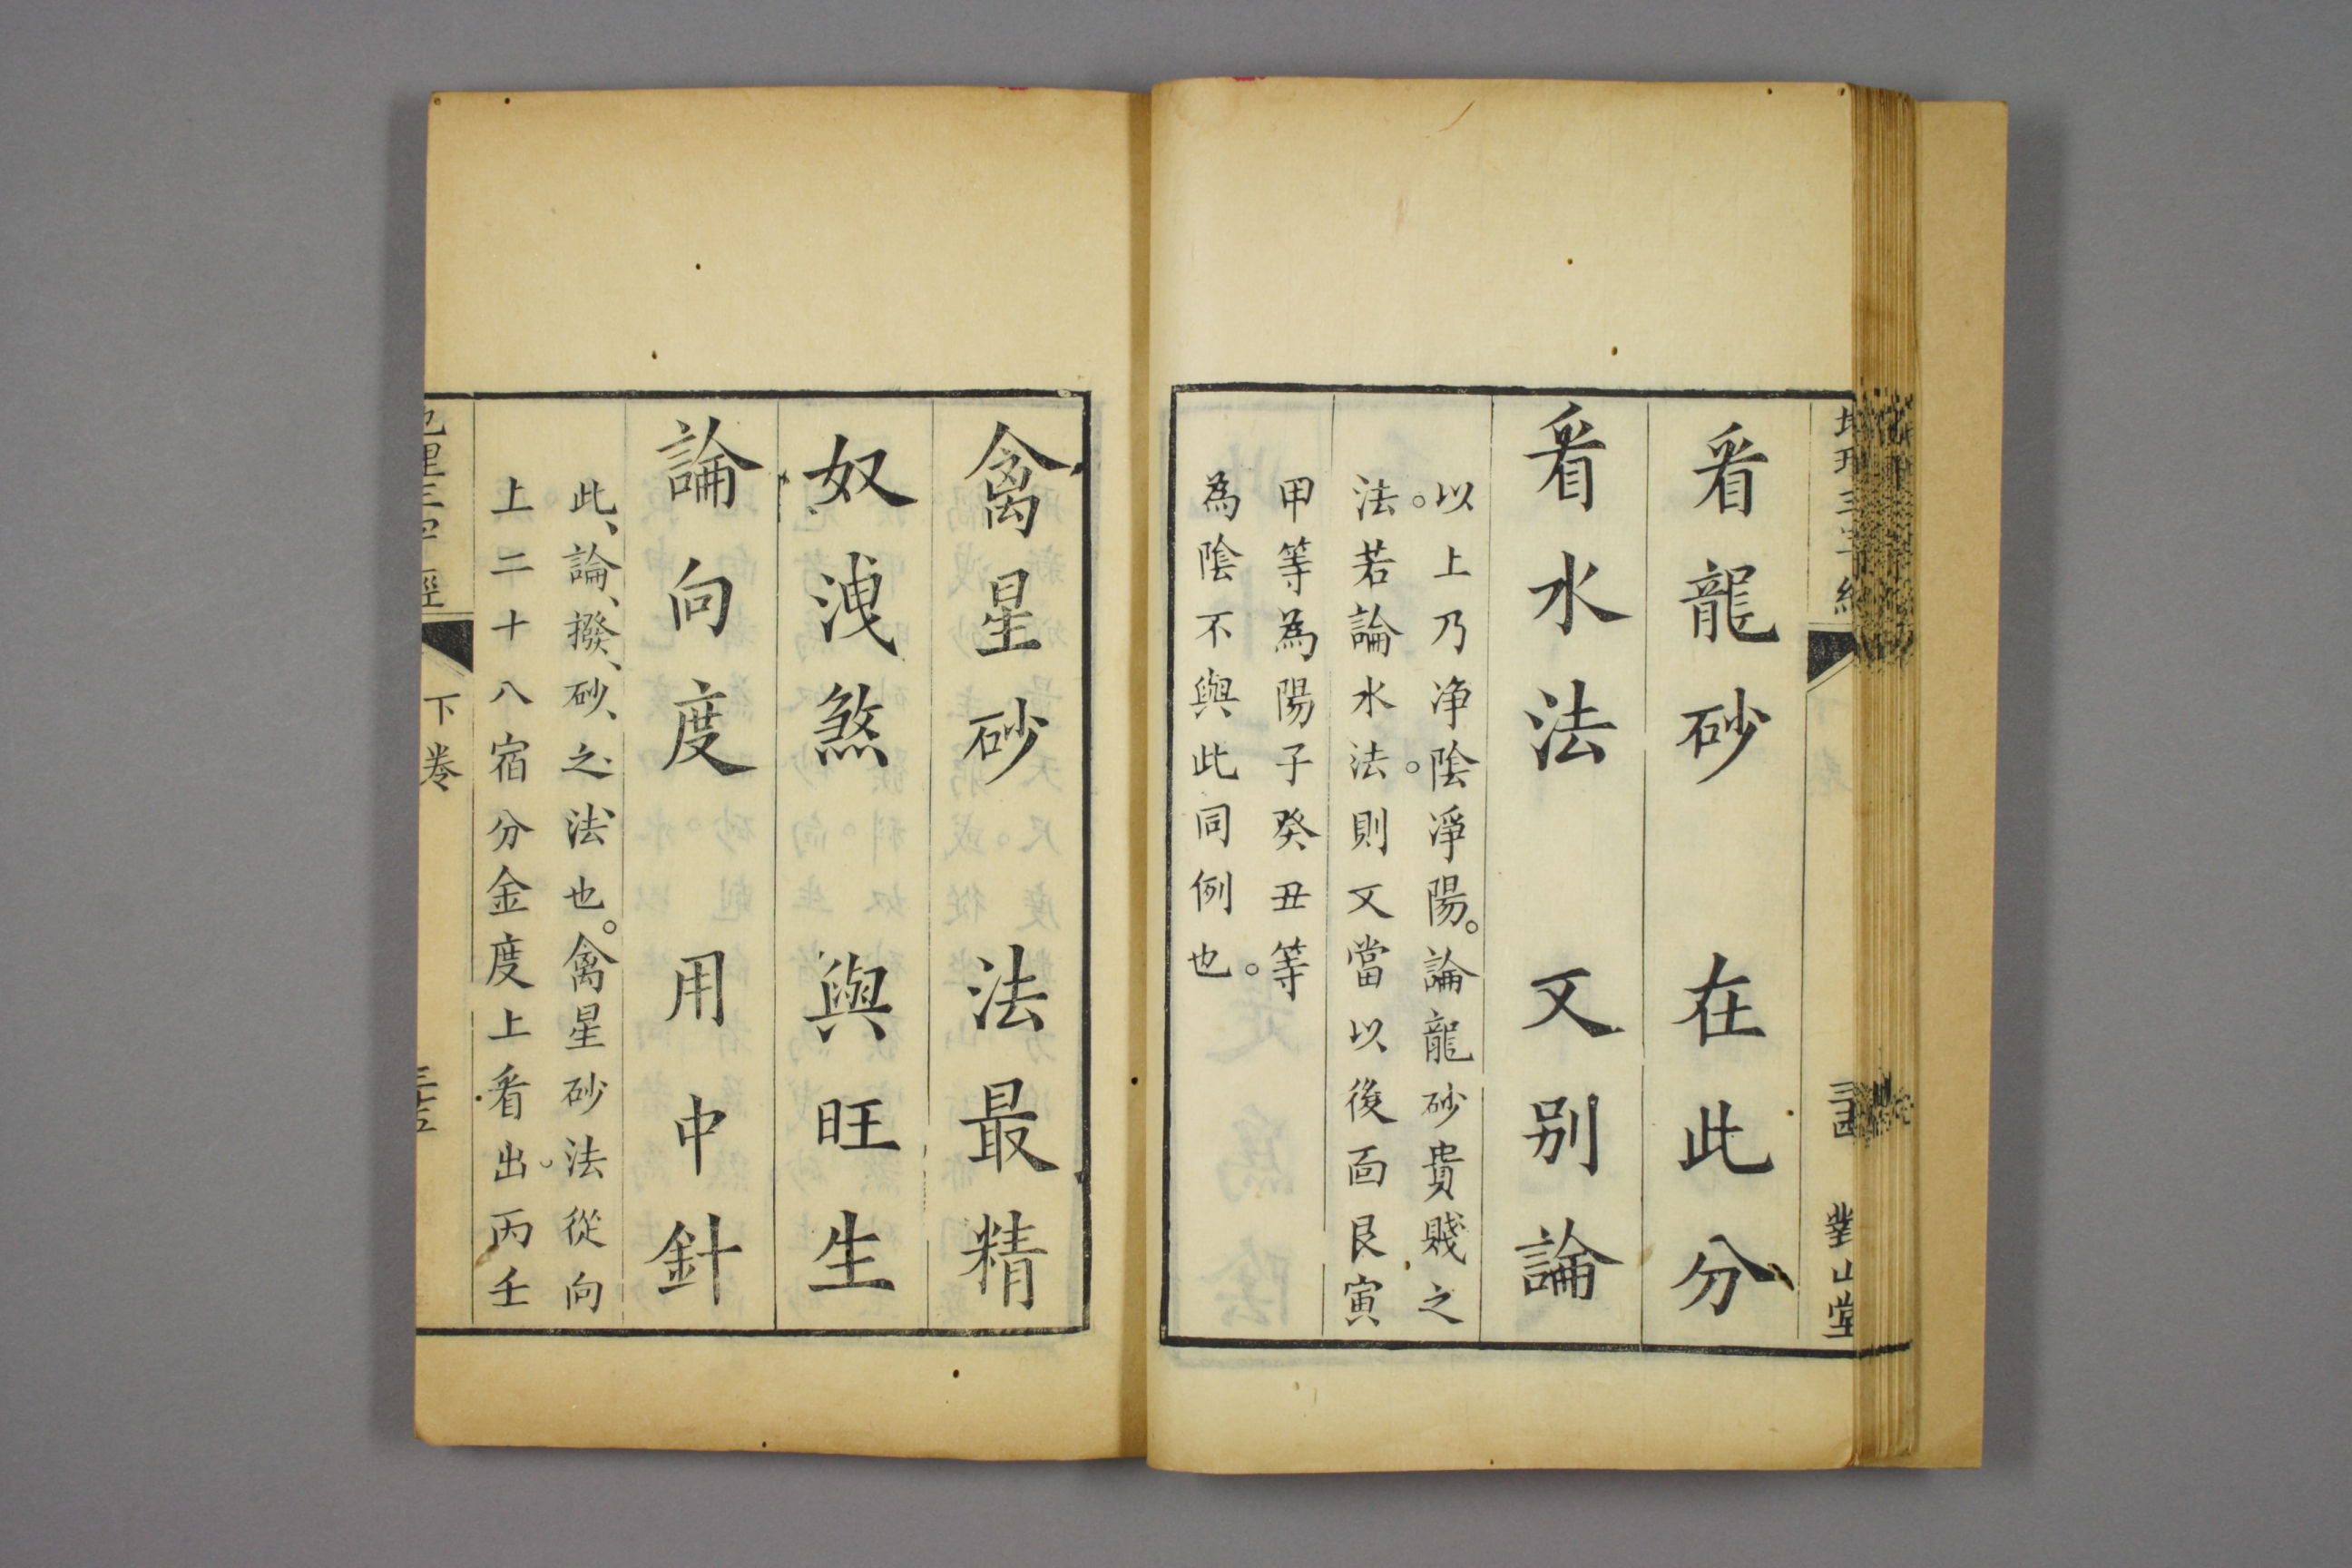 看龍砂　在此分
看水法　又别論
以上乃净陰淨陽。論龍砂貴賤之
法。若論水法。則又當以後面艮寅
甲等為陽子癸丑等
為陰不與此同例也。
對山堂
禽星砂　法最精
奴洩煞　與旺生
論向度　用中針
此、論、撥、砂、之、法、也。禽星砂法從向
上二十八宿分金度上看出。丙壬
地理三字經
下卷
三十五